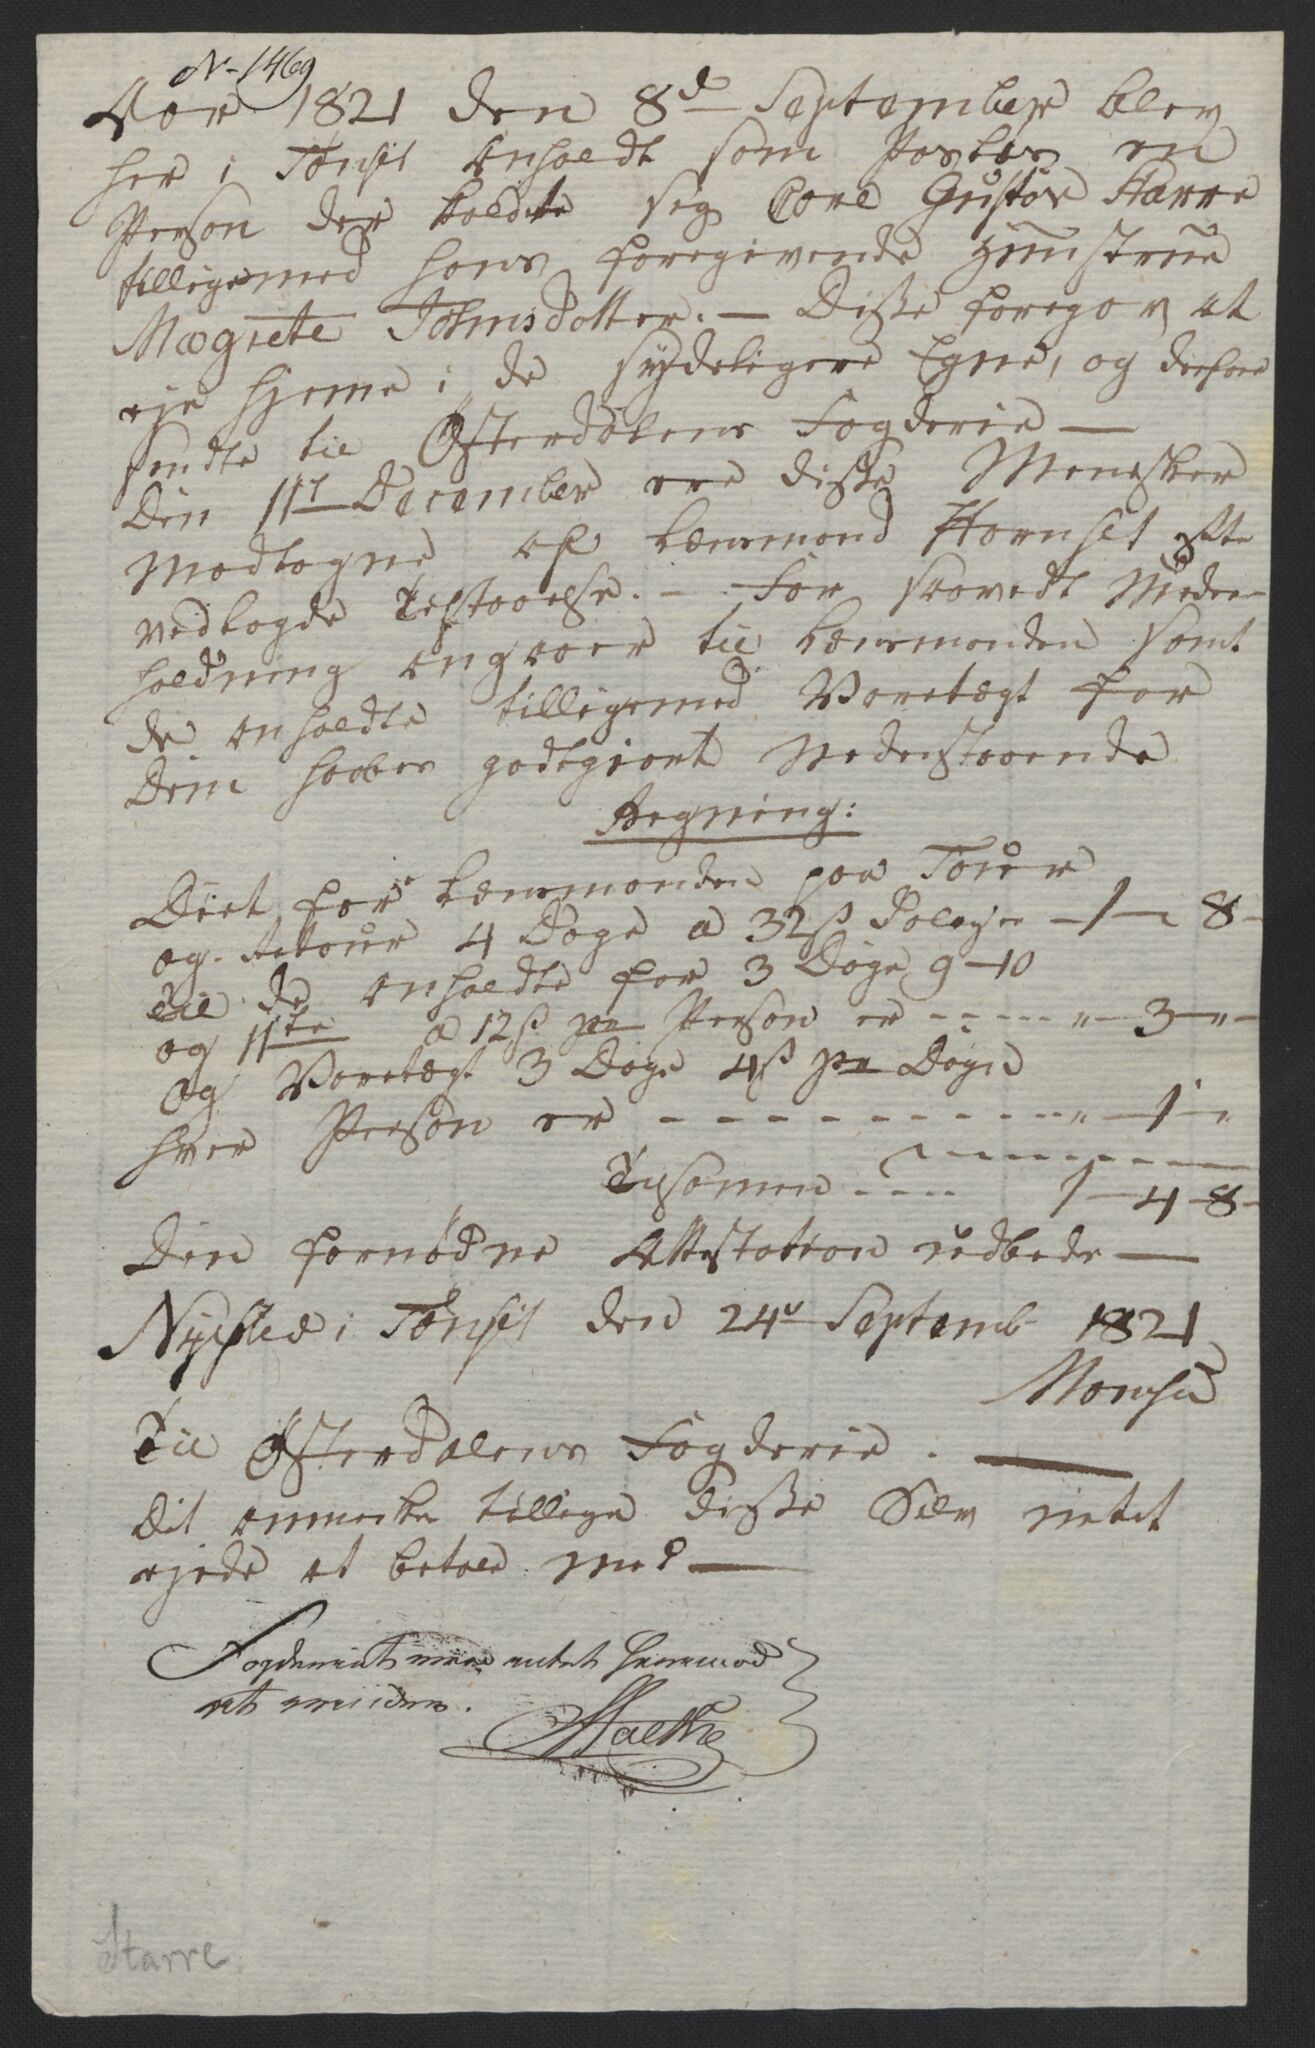 N- 1469
Aar 1821 den 8d September blev
her i Tønset anholdt som Paslös en
Person der kaldte sig Carl Gustav Starre
tilligemed hans foregivende Hüüstrüe
Magrete Johnsdotter. — Disse foregav at
eje hjeme i de sydeligere Egne, og derfore
sendte til Østerdalens Fogderie —
Den 11te December ere disse Menesker
Modtagne af Lænsmand Hornset efter
vedlagde Tilstaaelse. — For saavedt Under-
holdning angaaer til Lænsmanden samt
de anholdte tilligemed Varetægt for
Dem haabes godtgiort Nedenstaaende
Regning:
Diet for Lænsmanden paa Tour
og Retour 4 Døge a 32ß Daleger — 1 — „ 8 —
til de anholdte for 3 Døge 9 — 10
og 11te a 12ß pr Person er - - - - - „ — 3 — „ —
og Varetægt 3 Døge 4ß pr Døgn
hver Person er - - - - - - - - - - „ — 1 — „
Tilsamen - - - - 1 — 4 — 8 —
Den fornødne Attestation udbede —
Nysted i Tønset den 24de Septemb 1821
Monsen
Til Østerdalens Fogderie. —
Dit anmerke tillige disse Selv intet
ejede at betale med —
Fogderiet med intet herimod
at erindre.
Starre